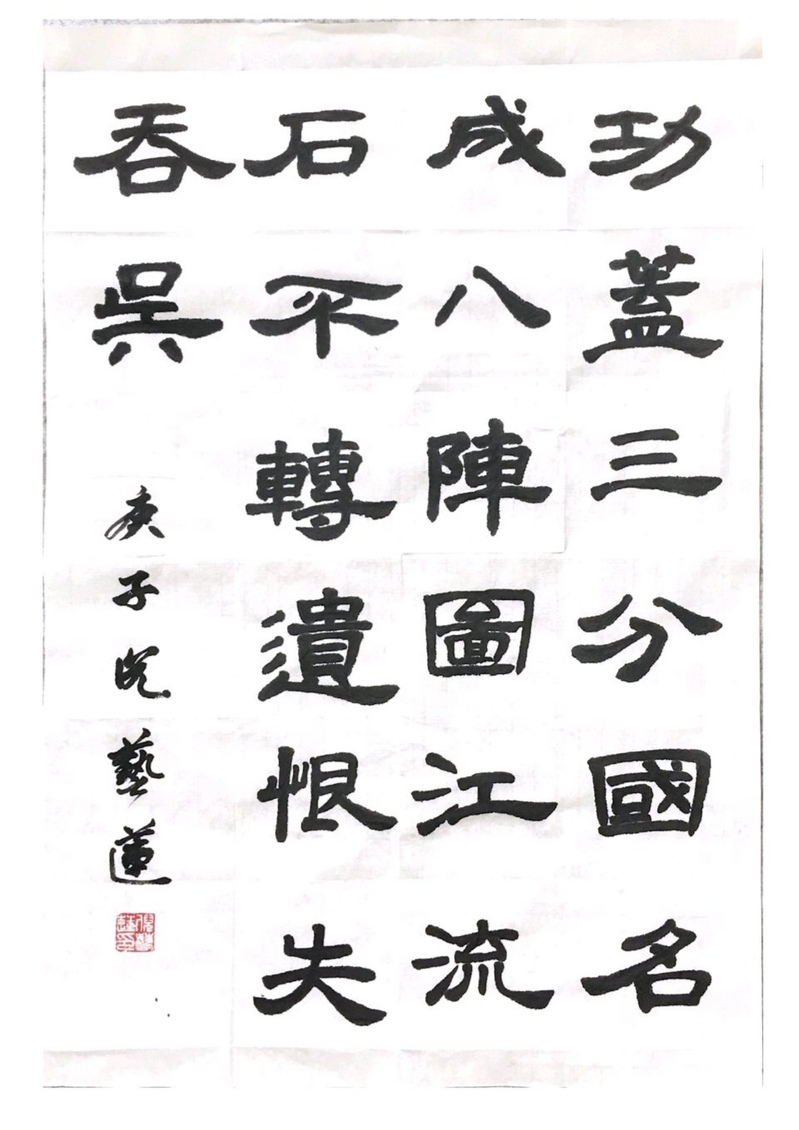 功蓋三分國名
成八陣圖江流
石不轉遺恨失
吞吳
庚子倪藝蓮